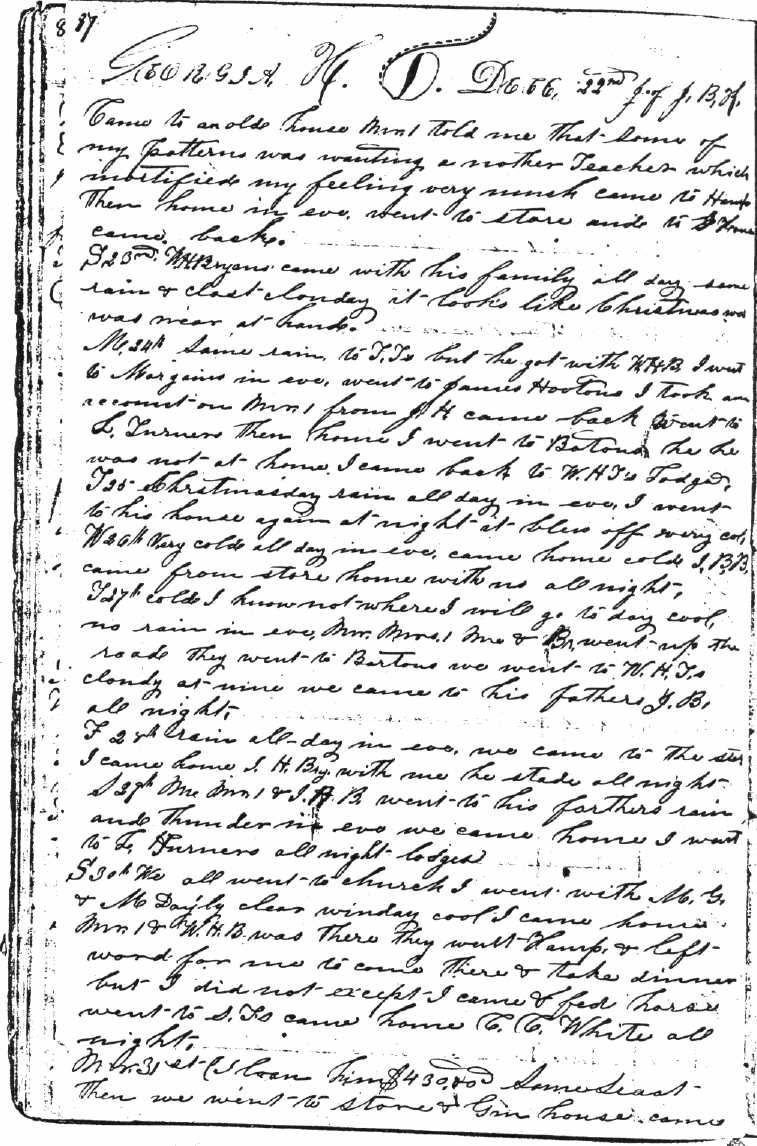 87
GEORGIA, H. D. DECE, 22nd J. of J. B. H.
Came to an olde house Mrs 1 told me that some of
my patterns was wanting a nother Teacher which
mortifiede my feeling very mush came to Hamp
then home in eve. went to store ande to
came back.
S 23rd. W.H.Bryans came with his family all day some
rain & clast clouday it looks like Christmas
was near at hande.
M, 24th Some rain, to T, Ts but he got with W.H.B, I went
to Morgains in eve, went to James Hootons I took an
account on Mrs, 1 from J, H came back went to
L, Turners then home I went to Batons he he
was not at home, I came back to W.H T's Lodged,
T 25 Chrstmasday rain all day in eve, I went
to his house again at night it blew off very col,
W 26th Very colde all day in eve, came home colde J, B, B,
came from store home with us all night,
T 27th colde I know not where I will go to day cool,
no rain in eve, Mr. Mrs, 1 Me & Br, went up the
roade they went to Bartons we went to W. H. Ts
cloudy at nine we came to his fathers J. B,
all night,
F 28th rain all-day in eve, we came to the stor
I came home J. H. Bry, with me he stade all night
S 29th Me Mrs, 1 & J. H B. went to his farthers rain
ande thunder in eve we came home I went
to L, Hurners all night lodged
S 30th We all went to church I went with M. G,
& M Daily clear winday cool I came home
Mrs, 1 & W.H.B was there they went Hamp, & left
word for me to come there & take dinner
but I did not except I came & fed horse
went to S. Ts came home T. T. White all
night,
Mon. 31st (I loan him $430,00 Some Seaat
then we went to store & Gin house came